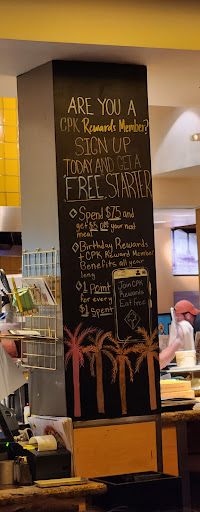 ARE YOU A
CPK Rewards Member?
SIGN UP
TODAY AND GET A
FREE STARTER
◇ Spend $75 and
get $5 off your next
meal
◇ Birthday Rewards
+ CPK Reward Member
Benefits all year
long
◇ 1 Point
for every
$1 spent
Join CPK
Rewards
Eat free